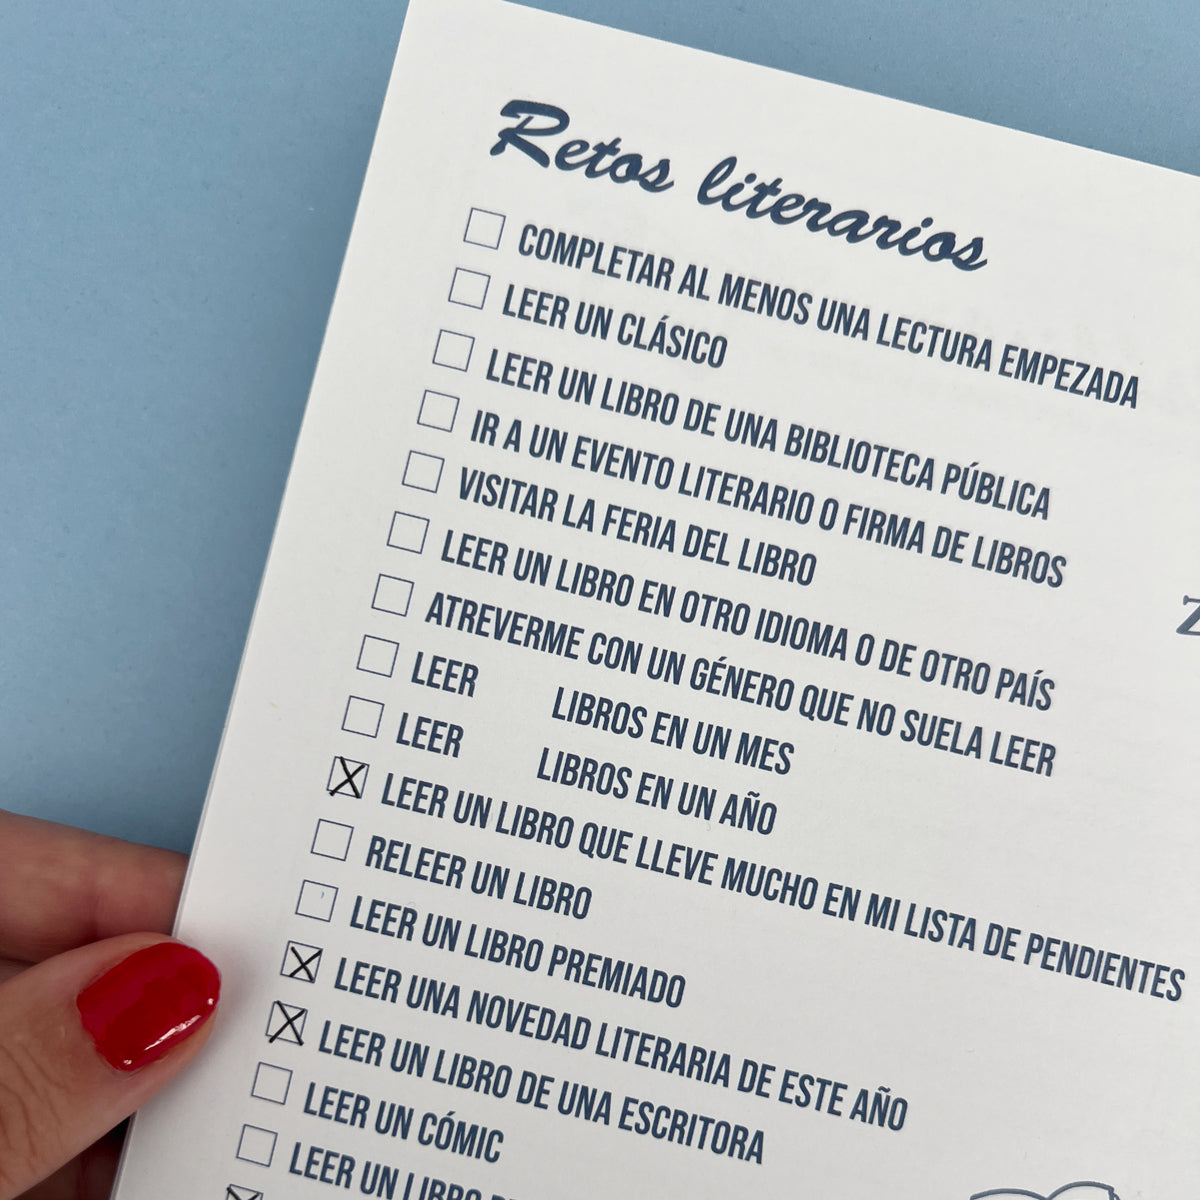 Retos literarios
COMPLETAR AL MENOS UNA LECTURA EMPEZADA
LEER UN CLÁSICO
LEER UN LIBRO DE UNA BIBLIOTECA PÚBLICA
IR A UN EVENTO LITERARIO O FIRMA DE LIBROS
VISITAR LA FERIA DEL LIBRO
LEER UN LIBRO EN OTRO IDIOMA O DE OTRO PAÍS
ATREVERME CON UN GÉNERO QUE NO SUELA LEER
LEER LIBROS EN UN MES
LEER LIBROS EN UN AÑO
LEER UN LIBRO QUE LLEVE MUCHO EN MI LISTA DE PENDIENTES
RELEER UN LIBRO
LEER UN LIBRO PREMIADO
LEER UNA NOVEDAD LITERARIA DE ESTE AÑO
LEER UN LIBRO DE UNA ESCRITORA
LEER UN CÓMIC
LEER UN LIBRO